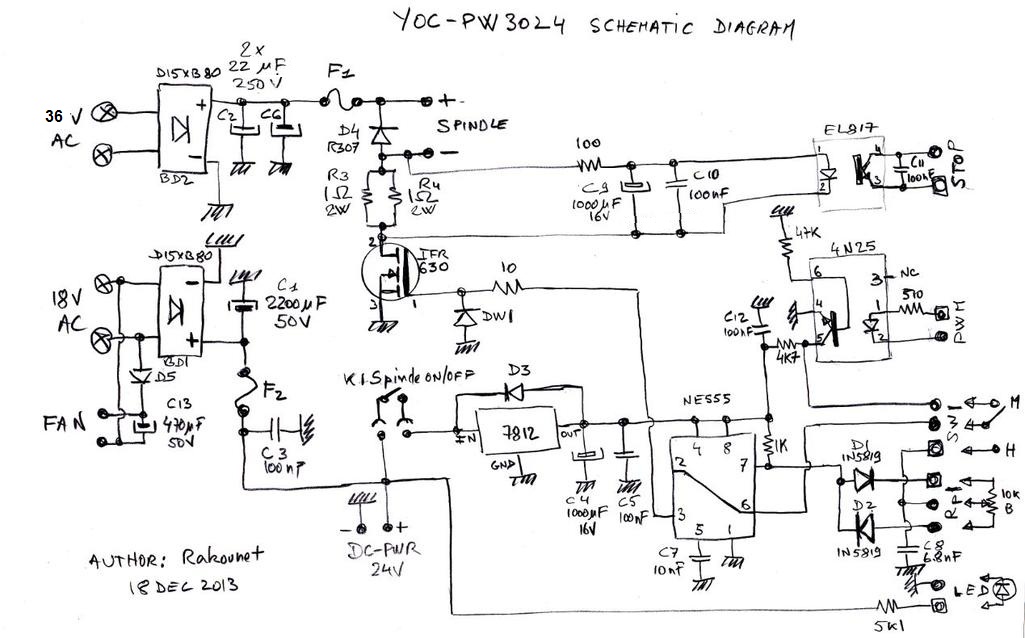 YOC-PW3024 SCHEMATIC DIAGRAM
36 V
AC
D15XB80
BD2
+
-
2x
22 µF
250V
C2
C6
F1
+
SPINDLE
-
D4
R307
R3
1Ω
2W
R4
1Ω
2W
100
C9
1000µF
16V
C10
100nF
EL817
1
2
4
3
C11
100nF
STOP
18V
AC
D15XB80
BD1
-
+
C1
2200µF
50V
2
IFR
630
3
1
10
DW1
47K
4N25
6
4
5
3
NC
1
2
510
PWM
C12
100nF
4K7
D5
C13
470µF
50V
FAN
F2
C3
100nF
K1.Spindle ON/OFF
D3
IN
7812
OUT
GND
C4
1000µF
16V
C5
100nF
NE555
4
8
2
7
6
3
5
1
C7
10nF
1K
D1
1N5819
D2
1N5819
SW1
M
H
RP1
10K
B
C8
6.8nF
LED
5K1
- +
DC-PWR
24V
AUTHOR: Rakounet
18 DEC 2013